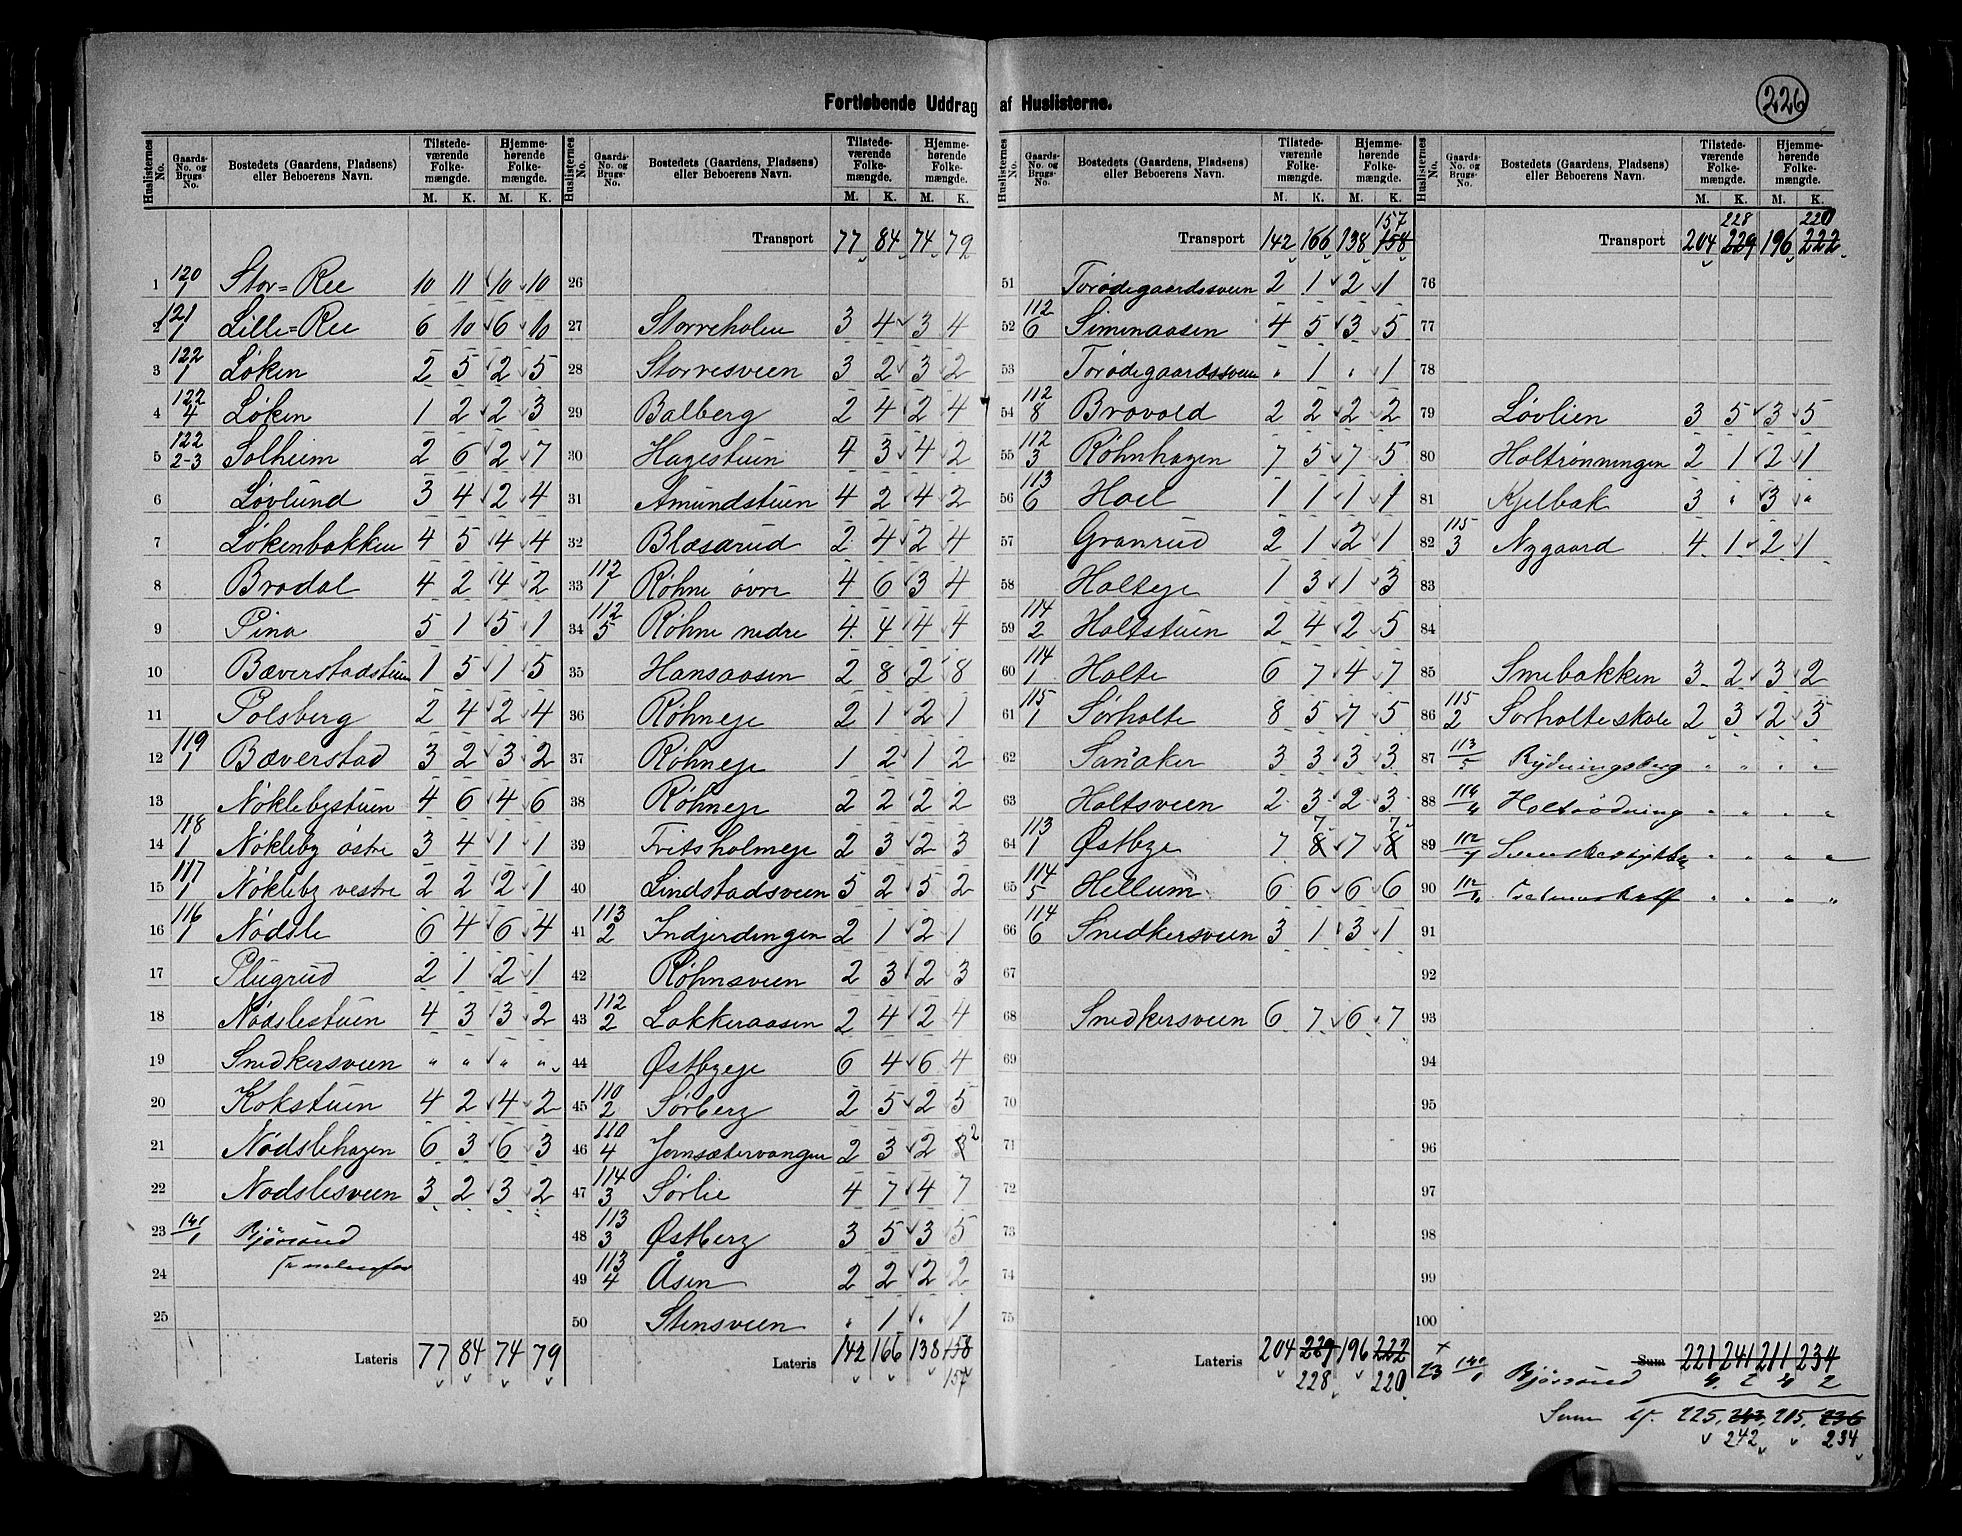 226
Fortløbende Uddrag af Huslisterne.
Huslisternes No. Gaards-No. og Brugs-No. Bostedets (Gaardens, Pladsens) eller Beboerens Navn. Tilstedeværende Folkemængde. M. K. Hjemmehørende Folkemængde. M. K.
1 120/1 Stor=Ree 10 11 10 10
2 121/1 Lille=Ree 6 10 6 10
3 122/1 Løken 2 5 2 5
4 122/4 Løken 1 2 2 3
5 122/2-3 Solheim 2 6 2 7
6 Løvlund 3 4 2 4
7 Løkenbakken 4 5 4 4
8 Brodal 4 2 4 2
9 Pina 5 1 5 1
10 Bæverstadstuen 1 5 1 5
11 Polsberg 2 4 2 4
12 119/1 Bæverstad 3 2 3 2
13 Nøklebystuen 4 6 4 6
14 118/1 Nøkleby østre 3 4 1 1
15 117/1 Nøkleby vestre 2 2 2 1
16 116/1 Nødsle 6 4 6 4
17 Plugrud 2 1 2 1
18 Nødslestuen 4 3 3 2
19 Snedkersveen " " " "
20 Kokstuen 4 2 4 2
21 Nødslehagen 6 3 6 3
22 Nødslesveen 3 2 3 2
23 Bjørsund
24
25
Lateris 77 84 74 79
Huslisternes No. Gaards-No. og Brugs-No. Bostedets (Gaardens, Pladsens) eller Beboerens Navn. Tilstedeværende Folkemængde. M. K. Hjemmehørende Folkemængde. M. K.
Transport 77 84 74 79
26
27 Storreholen 3 4 3 4
28 Storvesveen 3 2 3 2
29 Balberg 2 4 2 4
30 Hagestuen 4 3 4 2
31 Amundstuen 4 2 4 2
32 Blæsarud 2 4 2 4
33 112/1 Røhne øvre 4 6 3 4
34 112/5 Røhne nedre 4 4 4 4
35 Hansaasen 2 8 2 8
36 Røhneje 2 1 2 1
37 Røhneje 1 2 1 2
38 Røhneje 2 2 2 2
39 Fritsholmeje 2 3 2 3
40 Lindstadsveen 5 2 5 2
41 113/2 Indjerdingen 2 1 2 1
42 Røhnsveen 2 3 2 3
43 112/2 Lakkeraasen 2 4 2 4
44 Østbyeje 6 4 6 4
45 110/2 Sørberg 2 5 2 5
46 110/4 Jemsætervangen 2 3 2 3 2
47 114/3 Sørlie 4 7 4 7
48 113/3 Østberg 3 5 3 5
49 113/4 Åsen 2 2 2 2
50 Stensveen " 1 " 1
Lateris 142 166 138 158
157
Huslisternes No. Gaards-No. og Brugs-No. Bostedets (Gaardens, Pladsens) eller Beboerens Navn. Tilstedeværende Folkemængde. M. K. Hjemmehørende Folkemængde. M. K.
157
Transport 142 166 138 158
51 Torødegaardssveen 2 1 2 1
52 112/6 Simenaasen 4 5 3 5
53 Torødegaardssveen " 1 " 1
54 112/8 Brovold 2 2 2 2
55 112/3 Røhnhagen 7 5 7 5
56 113/6 Hoel 1 1 1 1
57 Granrud 2 1 2 1
58 Holteje 1 3 1 3
59 114/2 Holtstuen 2 4 2 5
60 114/1 Holte 6 7 4 7
61 115/1 Sørholte 8 5 7 5
62 Sandaker 3 3 3 3
63 Holtsveen 2 3 2 3
64 113/1 Østbye 7 8 7 7 8 7
65 114/5 Hellum 6 6 6 6
66 114/6 Snedkersveen 3 1 3 1
67
68 Snedkersveen 6 7 6 7
69
70
71
72
73
74
75
Lateris 204 229 196 222
228 220
Huslisternes No. Gaards-No. og Brugs-No. Bostedets (Gaardens, Pladsens) eller Beboerens Navn. Tilstedeværende Folkemængde. M. K. Hjemmehørende Folkemængde. M. K.
228 220
Transport 204 229 196 222
76
77
78
79 Løvlien 3 5 3 5
80 Holtrønningen 2 1 2 1
81 Kjelbak 3 " 3 "
82 115/3 Nygaard 4 1 2 1
83
84
85 Smebakken 3 2 3 2
86 115/2 Sørholte skole 2 3 2 3
87 113/5 Rydningsberg " " " "
88 Holtrødning " " " "
89 " " " "
90 " " " "
91
92
93
94
95
96
97
98
99
100
Sum 221 241 211 234
23 Bjørsund 4 2 4 2
Sum 225 243 215 236
242 234